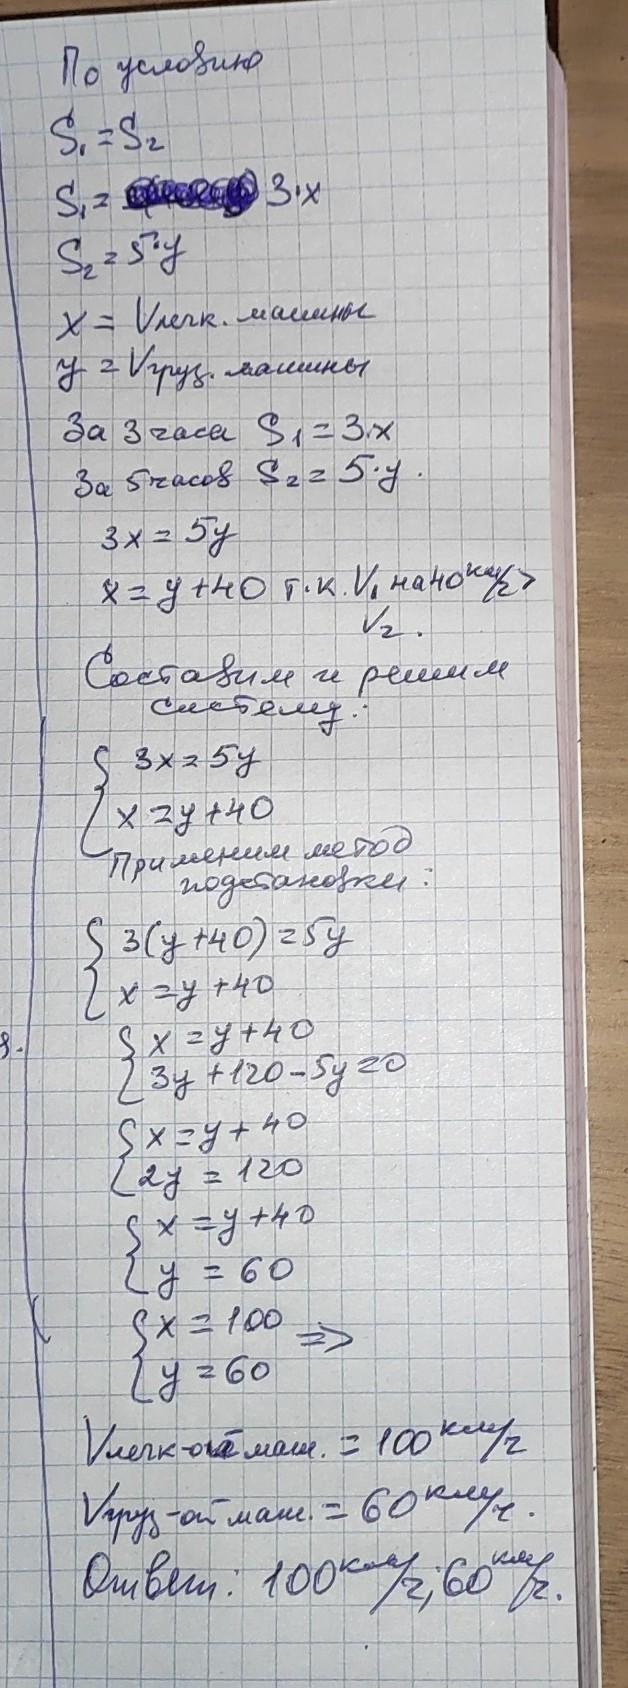 По условию
S₁ = S₂
S₁ = 3·x
S₂ = 5·y
x = Vлегк. машины
y = Vгруз. машины
За 3 часа S₁ = 3·x
За 5 часов S₂ = 5·y.
3x = 5y
x = y + 40 т.к. V₁ на 40 км/ч >
V₂.
Составим и решим
систему:
{ 3x = 5y
x = y + 40
Применим метод
подстановки:
{ 3(y+40) = 5y
x = y + 40
{ x = y + 40
3y + 120 - 5y = 0
{ x = y + 40
2y = 120
{ x = y + 40
y = 60
{ x = 100 =>
y = 60
Vлегк-ой маш. = 100 км/ч
Vгруз-ой маш. = 60 км/ч.
Ответ: 100 км/ч; 60 км/ч.